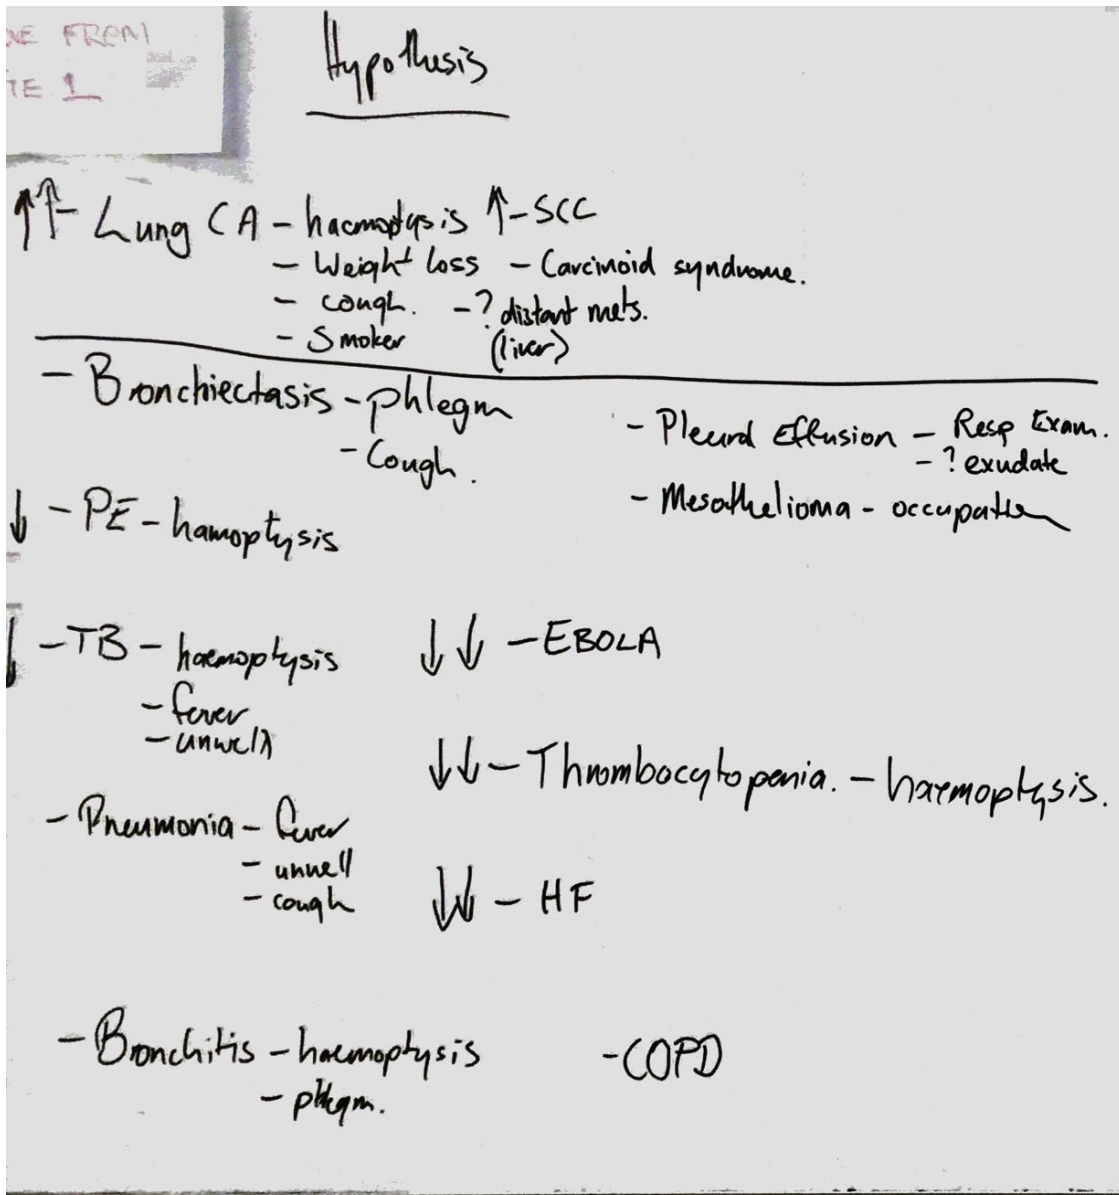 NE FROM
TE 1
Hypothesis
↑↑- Lung CA - haemoptysis ↑-SCC
- Weight loss - Carcinoid syndrome.
- cough. -? distant mets.
- Smoker (liver)
- Bronchiectasis - phlegm
- Cough.
- Pleural Effusion - Resp Exam.
- ? exudate
- Mesothelioma - occupation
↓ - PE - hamoptysis
↓ - TB - haemoptysis
- fever
- unwell
↓↓ - EBOLA
↓↓ - Thrombocytopenia. - haemoptysis.
- Pneumonia - fever
- unwell
- cough
↓↓ - HF
- Bronchitis - haemoptysis
- phlegm.
- COPD